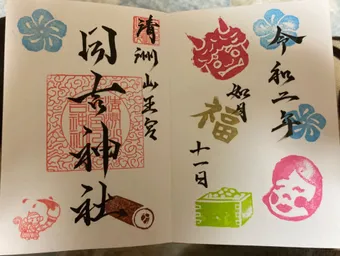 令和二年
如月
十一日
福
清洲山王宮
日吉神社